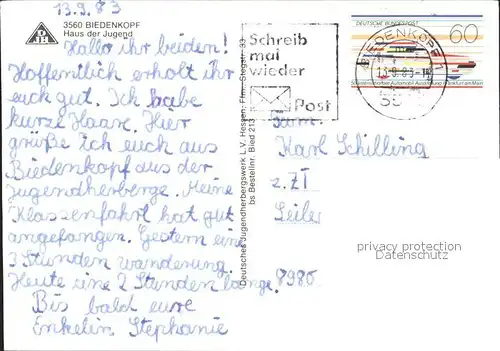 13.9.83
3560 BIEDENKOPF
Haus der Jugend
Hallo ihr beiden!
Hoffentlich erholt ihr
euch gut. Ich habe
kurze Haare. Hier
grüße ich euch aus
Biedenkopf aus der
Jugendherberge. Meine
Klassenfahrt hat gut
angefangen. Gestern eine
3 Stunden wanderung.
Heute eine 2 Stunden lange.
Bis bald eure
Enkelin Stephanie
Deutsches Jugendherbergswerk L.V. Hessen, Ffm., Stegstr. 33
bs Bestellnr. Bied 213
Schreib
mal
wieder
Post
DEUTSCHE BUNDESPOST
60
BIEDENKOPF 1
13.9.83-1
Fam.
Karl Schilling
z. ZT
8980
privacy protection
Datenschutz